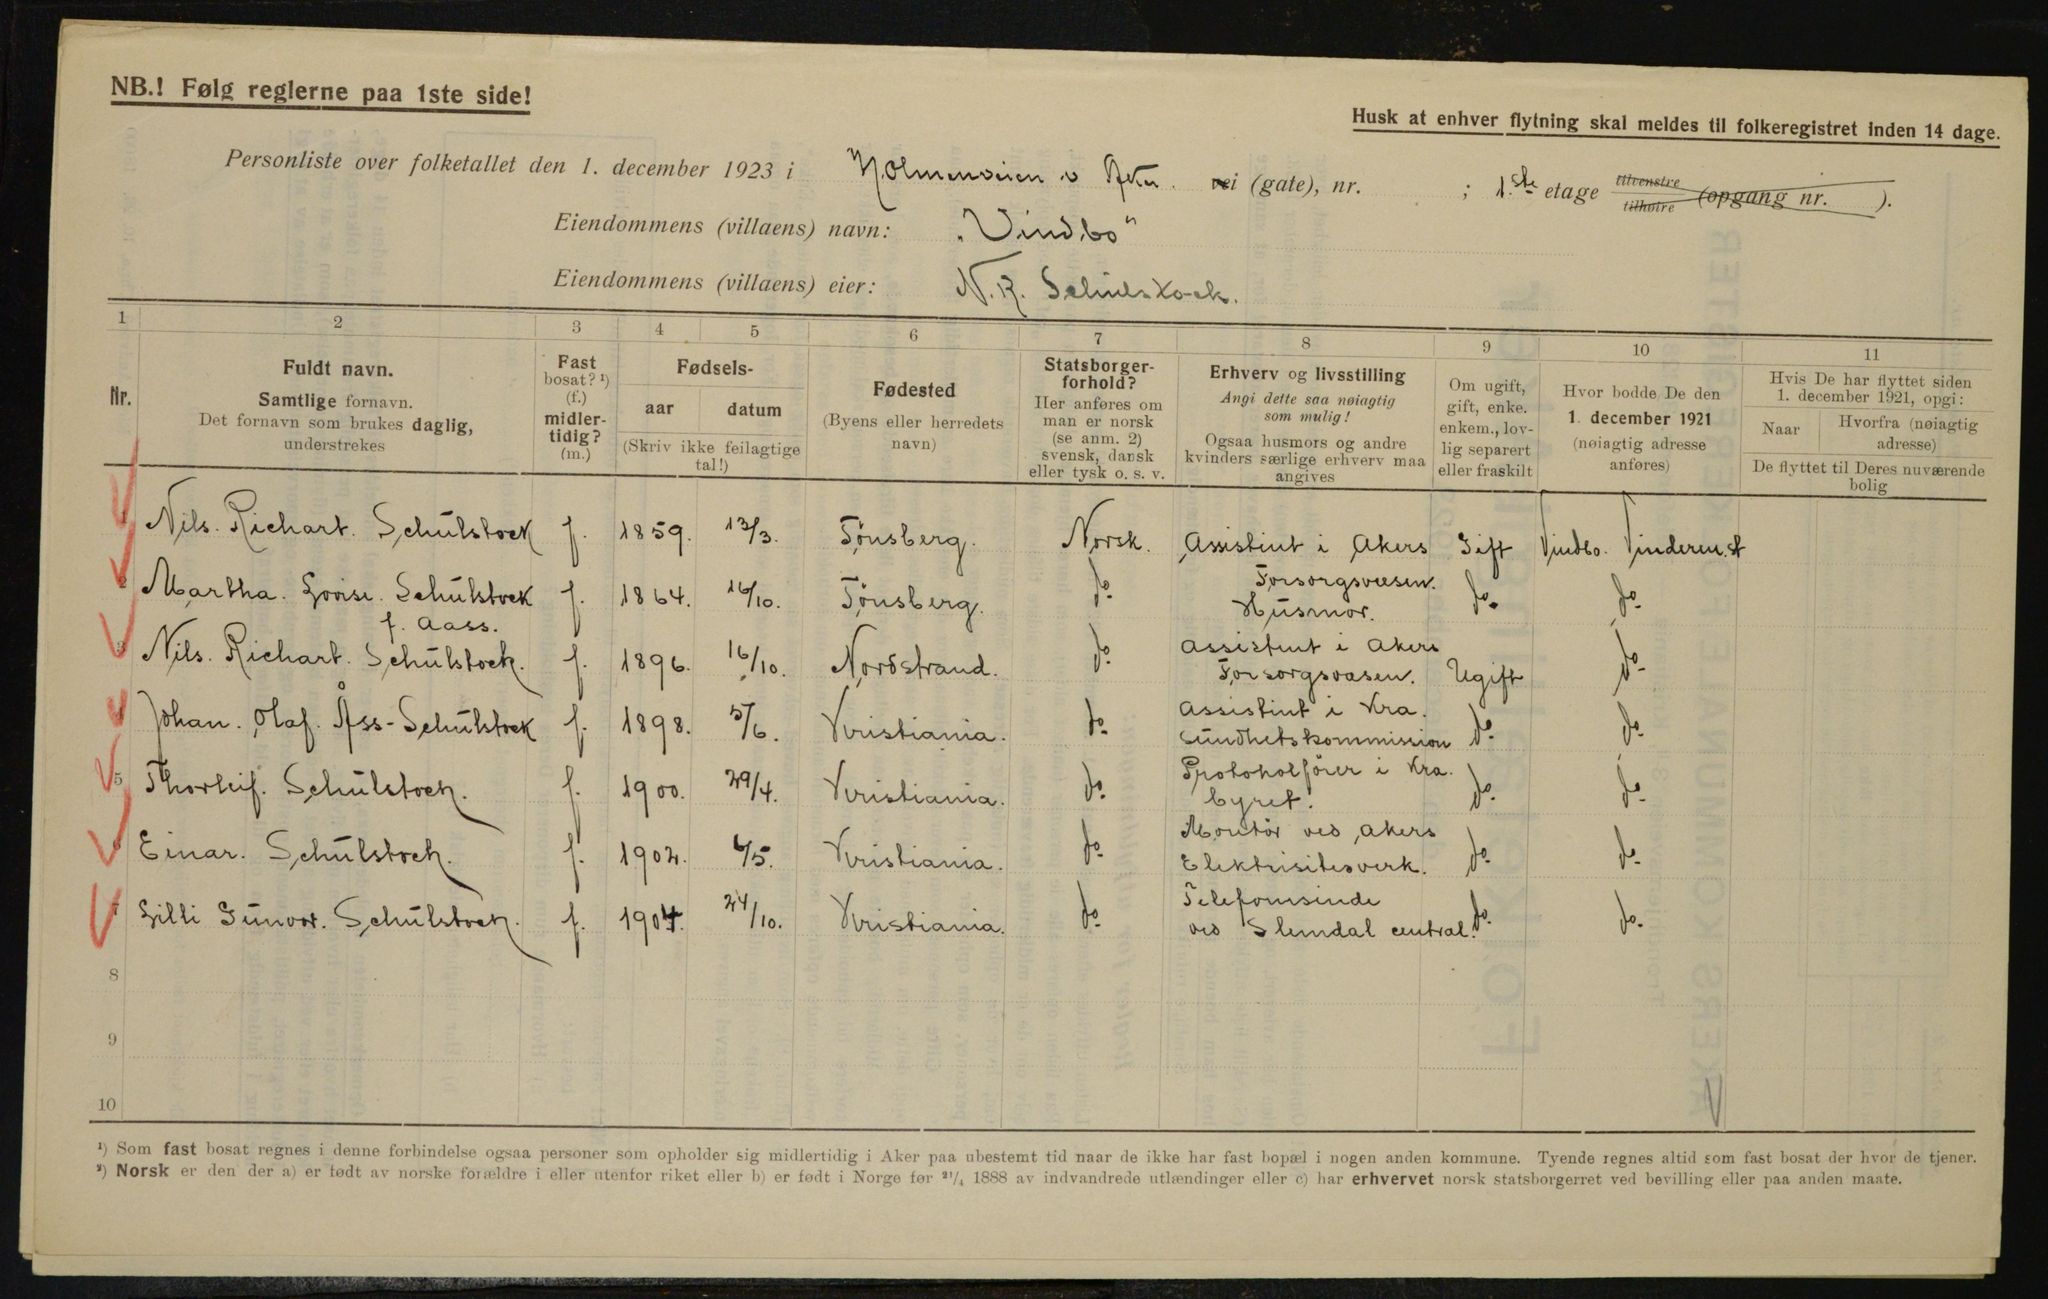 NB.! Følg reglerne paa 1ste side!
Husk at enhver flytning skal meldes til folkeregistret inden 14 dage.
Personliste over folketallet den 1. december 1923 i Holmenveien v Aker vei (gate), nr. ; 1.ste etage tilvenstre tilhøire (opgang nr. ).
Eiendommens (villaens) navn: "Vindbo"
Eiendommens (villaens) eier: N. R. Schulstock.
1 2 3 4 5 6 7 8 9 10 11
Nr.
Fuldt navn.
Samtlige fornavn.
Det fornavn som brukes daglig,
understrekes
Fast
bosat? ¹)
(f.)
midler-
tidig?
(m.)
Fødsels-
aar datum
(Skriv ikke feilagtige
tal!)
Fødested
(Byens eller herredets
navn)
Statsborger-
forhold?
Her anføres om
man er norsk
(se anm. 2)
svensk, dansk
eller tysk o. s. v.
Erhverv og livsstilling
Angi dette saa nøiagtig
som mulig!
Ogsaa husmors og andre
kvinders særlige erhverv maa
angives
Om ugift,
gift, enke.
enkem., lov-
lig separert
eller fraskilt
Hvor bodde De den
1. december 1921
(nøiagtig adresse
anføres)
Hvis De har flyttet siden
1. december 1921, opgi:
Naar Hvorfra (nøiagtig
adresse)
De flyttet til Deres nuværende
bolig
1 Nils. Richart. Schulstock f. 1859. 13/3. Tønsberg. Norsk. Assistent i Akers Gift Vindbo. Vinderen. st
Forsorgsvæsen.
2 Martha. Lovise. Schulstock f. 1864. 16/10. Tønsberg. do Husmor. do. do
f. Aass.
3 Nils. Richart. Schulstock. f. 1896. 16/10. Nordstrand. do Assistent i Akers
Forsorgsvæsen. Ugift do
4 Johan. Olaf. Åss-Schulstock f. 1898. 5/6. Kristiania. do Assistent i Kra.
Sundhetskommission do do
5 Thorleif. Schulstock. f. 1900. 29/4. Kristiania. do Protokolfører i Kra.
byret. do do
6 Einar. Schulstock. f. 1902. 6/5. Kristiania. do Montør ved Akers
Elektrisitesverk. do do
7 Lilli Gunvor. Schulstock. f. 1904. 24/10. Kristiania. do Telefonsinde
ved Slemdal central. do do
8
9
10
¹) Som fast bosat regnes i denne forbindelse ogsaa personer som opholder sig midlertidig i Aker paa ubestemt tid naar de ikke har fast bopæl i nogen anden kommune. Tyende regnes altid som fast bosat der hvor de tjener.
²) Norsk er den der a) er født av norske forældre i eller utenfor riket eller b) er født i Norge før ²¹/₄ 1888 av indvandrede utlændinger eller c) har erhvervet norsk statsborgerret ved bevilling eller paa anden maate.